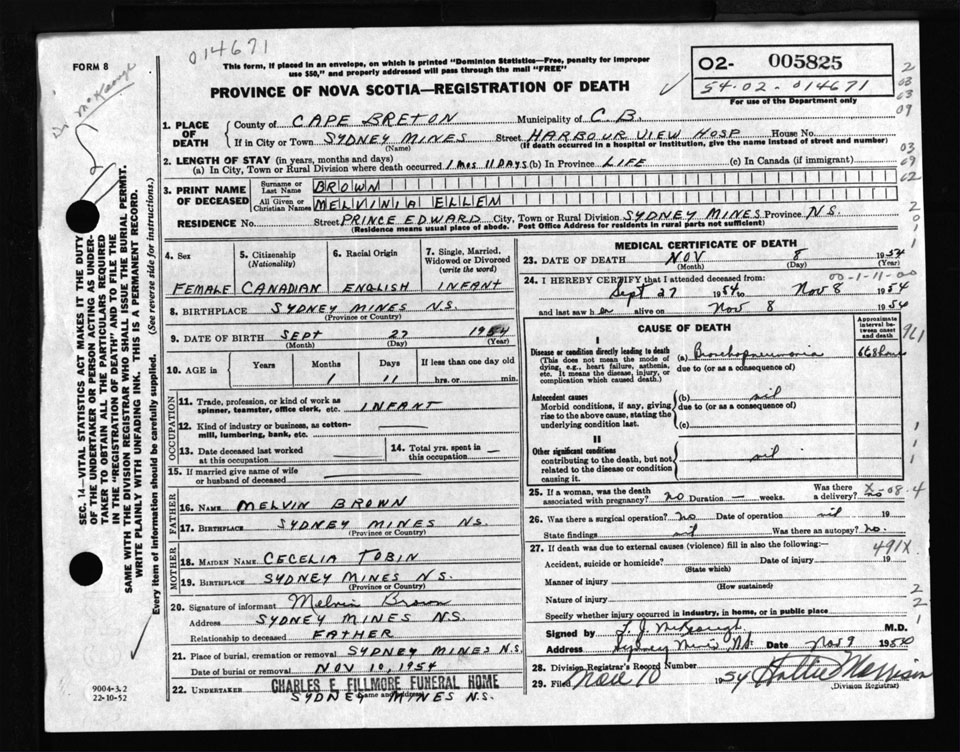 014671
FORM 8
Dr McKeough
This form, if placed in an envelope, on which is printed "Dominion Statistics—Free, penalty for improper
use $50," and properly addressed will pass through the mail "FREE"
02- 005825
54-02-014671
For use of the Department only
PROVINCE OF NOVA SCOTIA—REGISTRATION OF DEATH
1. PLACE OF DEATH County of CAPE BRETON Municipality of C B.
If in City or Town SYDNEY MINES Street HARBOUR VIEW HOSP House No.
(Name) (If death occurred in a hospital or institution, give the name instead of street and number)
2. LENGTH OF STAY (in years, months and days)
(a) In City, Town or Rural Division where death occurred 1 MOS 11 DAYS (b) In Province LIFE (c) In Canada (if immigrant)
3. PRINT NAME OF DECEASED Surname or Last Name BROWN
All Given or Christian Names MELVINIA ELLEN
RESIDENCE No. Street PRINCE EDWARD City, Town or Rural Division SYDNEY MINES Province N.S.
(Residence means usual place of abode. Post Office Address for residents in rural parts not sufficient)
2
03
63
09
03
69
62
2
0
1
1
SEC. 14—VITAL STATISTICS ACT MAKES IT THE DUTY
OF THE UNDERTAKER OR PERSON ACTING AS UNDER-
TAKER TO OBTAIN ALL THE PARTICULARS REQUIRED
IN THE "REGISTRATION OF DEATH" AND TO FILE THE
SAME WITH THE DIVISION REGISTRAR WHO SHALL ISSUE THE BURIAL PERMIT.
WRITE PLAINLY WITH UNFADING INK. THIS IS A PERMANENT RECORD.
Every item of information should be carefully supplied. (See reverse side for instructions.)
4. Sex 5. Citizenship (Nationality) 6. Racial Origin 7. Single, Married, Widowed or Divorced (write the word)
FEMALE CANADIAN ENGLISH INFANT
8. BIRTHPLACE SYDNEY MINES N.S.
(Province or Country)
9. DATE OF BIRTH SEPT 27 1954
(Month) (Day) (Year)
10. AGE in Years Months Days If less than one day old
1 11 hrs. or min.
OCCUPATION
11. Trade, profession, or kind of work as spinner, teamster, office clerk, etc. INFANT
12. Kind of industry or business, as cotton-mill, lumbering, bank, etc.
13. Date deceased last worked at this occupation 14. Total yrs. spent in this occupation —
15. If married give name of wife or husband of deceased
FATHER
16. NAME MELVIN BROWN
17. BIRTHPLACE SYDNEY MINES NS.
(Province or Country)
MOTHER
18. MAIDEN NAME CECELIA TOBIN
19. BIRTHPLACE SYDNEY MINES N.S.
(Province or Country)
20. Signature of informant Melvin Brown
Address SYDNEY MINES N.S.
Relationship to deceased FATHER
21. Place of burial, cremation or removal SYDNEY MINES N.S.
Date of burial or removal NOV 10, 1954
22. UNDERTAKER CHARLES E. FILLMORE FUNERAL HOME
(Name and address)
SYDNEY MINES N.S.
9004-3.2
22-10-52
MEDICAL CERTIFICATE OF DEATH
23. DATE OF DEATH NOV 8 1954
(Month) (Day) (Year)
00-1-11-00
24. I HEREBY CERTIFY that I attended deceased from:
Sept 27 1954 to Nov 8 1954
and last saw h er alive on Nov 8 1954
CAUSE OF DEATH
Approximate interval between onset and death
961
I
Disease or condition directly leading to death (a) Bronchopneumonia
(This does not mean the mode of dying, e.g., heart failure, asthenia, etc. It means the disease, injury, or complication which caused death.)
due to (or as a consequence of)
Antecedent causes (b) nil
Morbid conditions, if any, giving rise to the above cause, stating the underlying condition last.
due to (or as a consequence of)
(c)
II
Other significant conditions nil
contributing to the death, but not related to the disease or condition causing it.
25. If a woman, was the death associated with pregnancy? no Duration — weeks. Was there a delivery? no
X-08.4
26. Was there a surgical operation? no Date of operation nil 19
State findings nil Was there an autopsy? no.
27. If death was due to external causes (violence) fill in also the following:— 491X
Accident, suicide or homicide? Date of injury 19
(State which)
Manner of injury
(How sustained)
Nature of injury
Specify whether injury occurred in industry, in home, or in public place
Signed by L J. McKeough M.D.
Address Sydney Mines N.S. Date Nov 9 1950
28. Division Registrar's Record Number
29. Filed Nov 10 1954 Hattie Morrison
(Division Registrar)